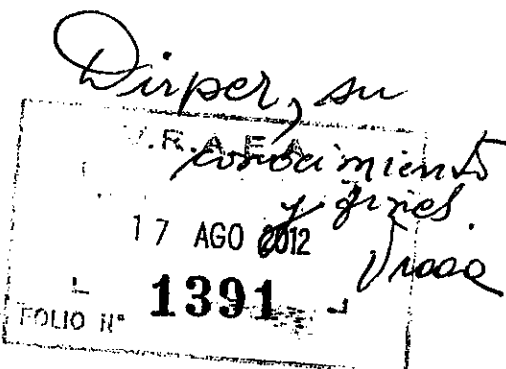 Dirper, su
V.R.A.E.A.
conocimiento
y fines.
17 AGO 2012
1391
FOLIO N°